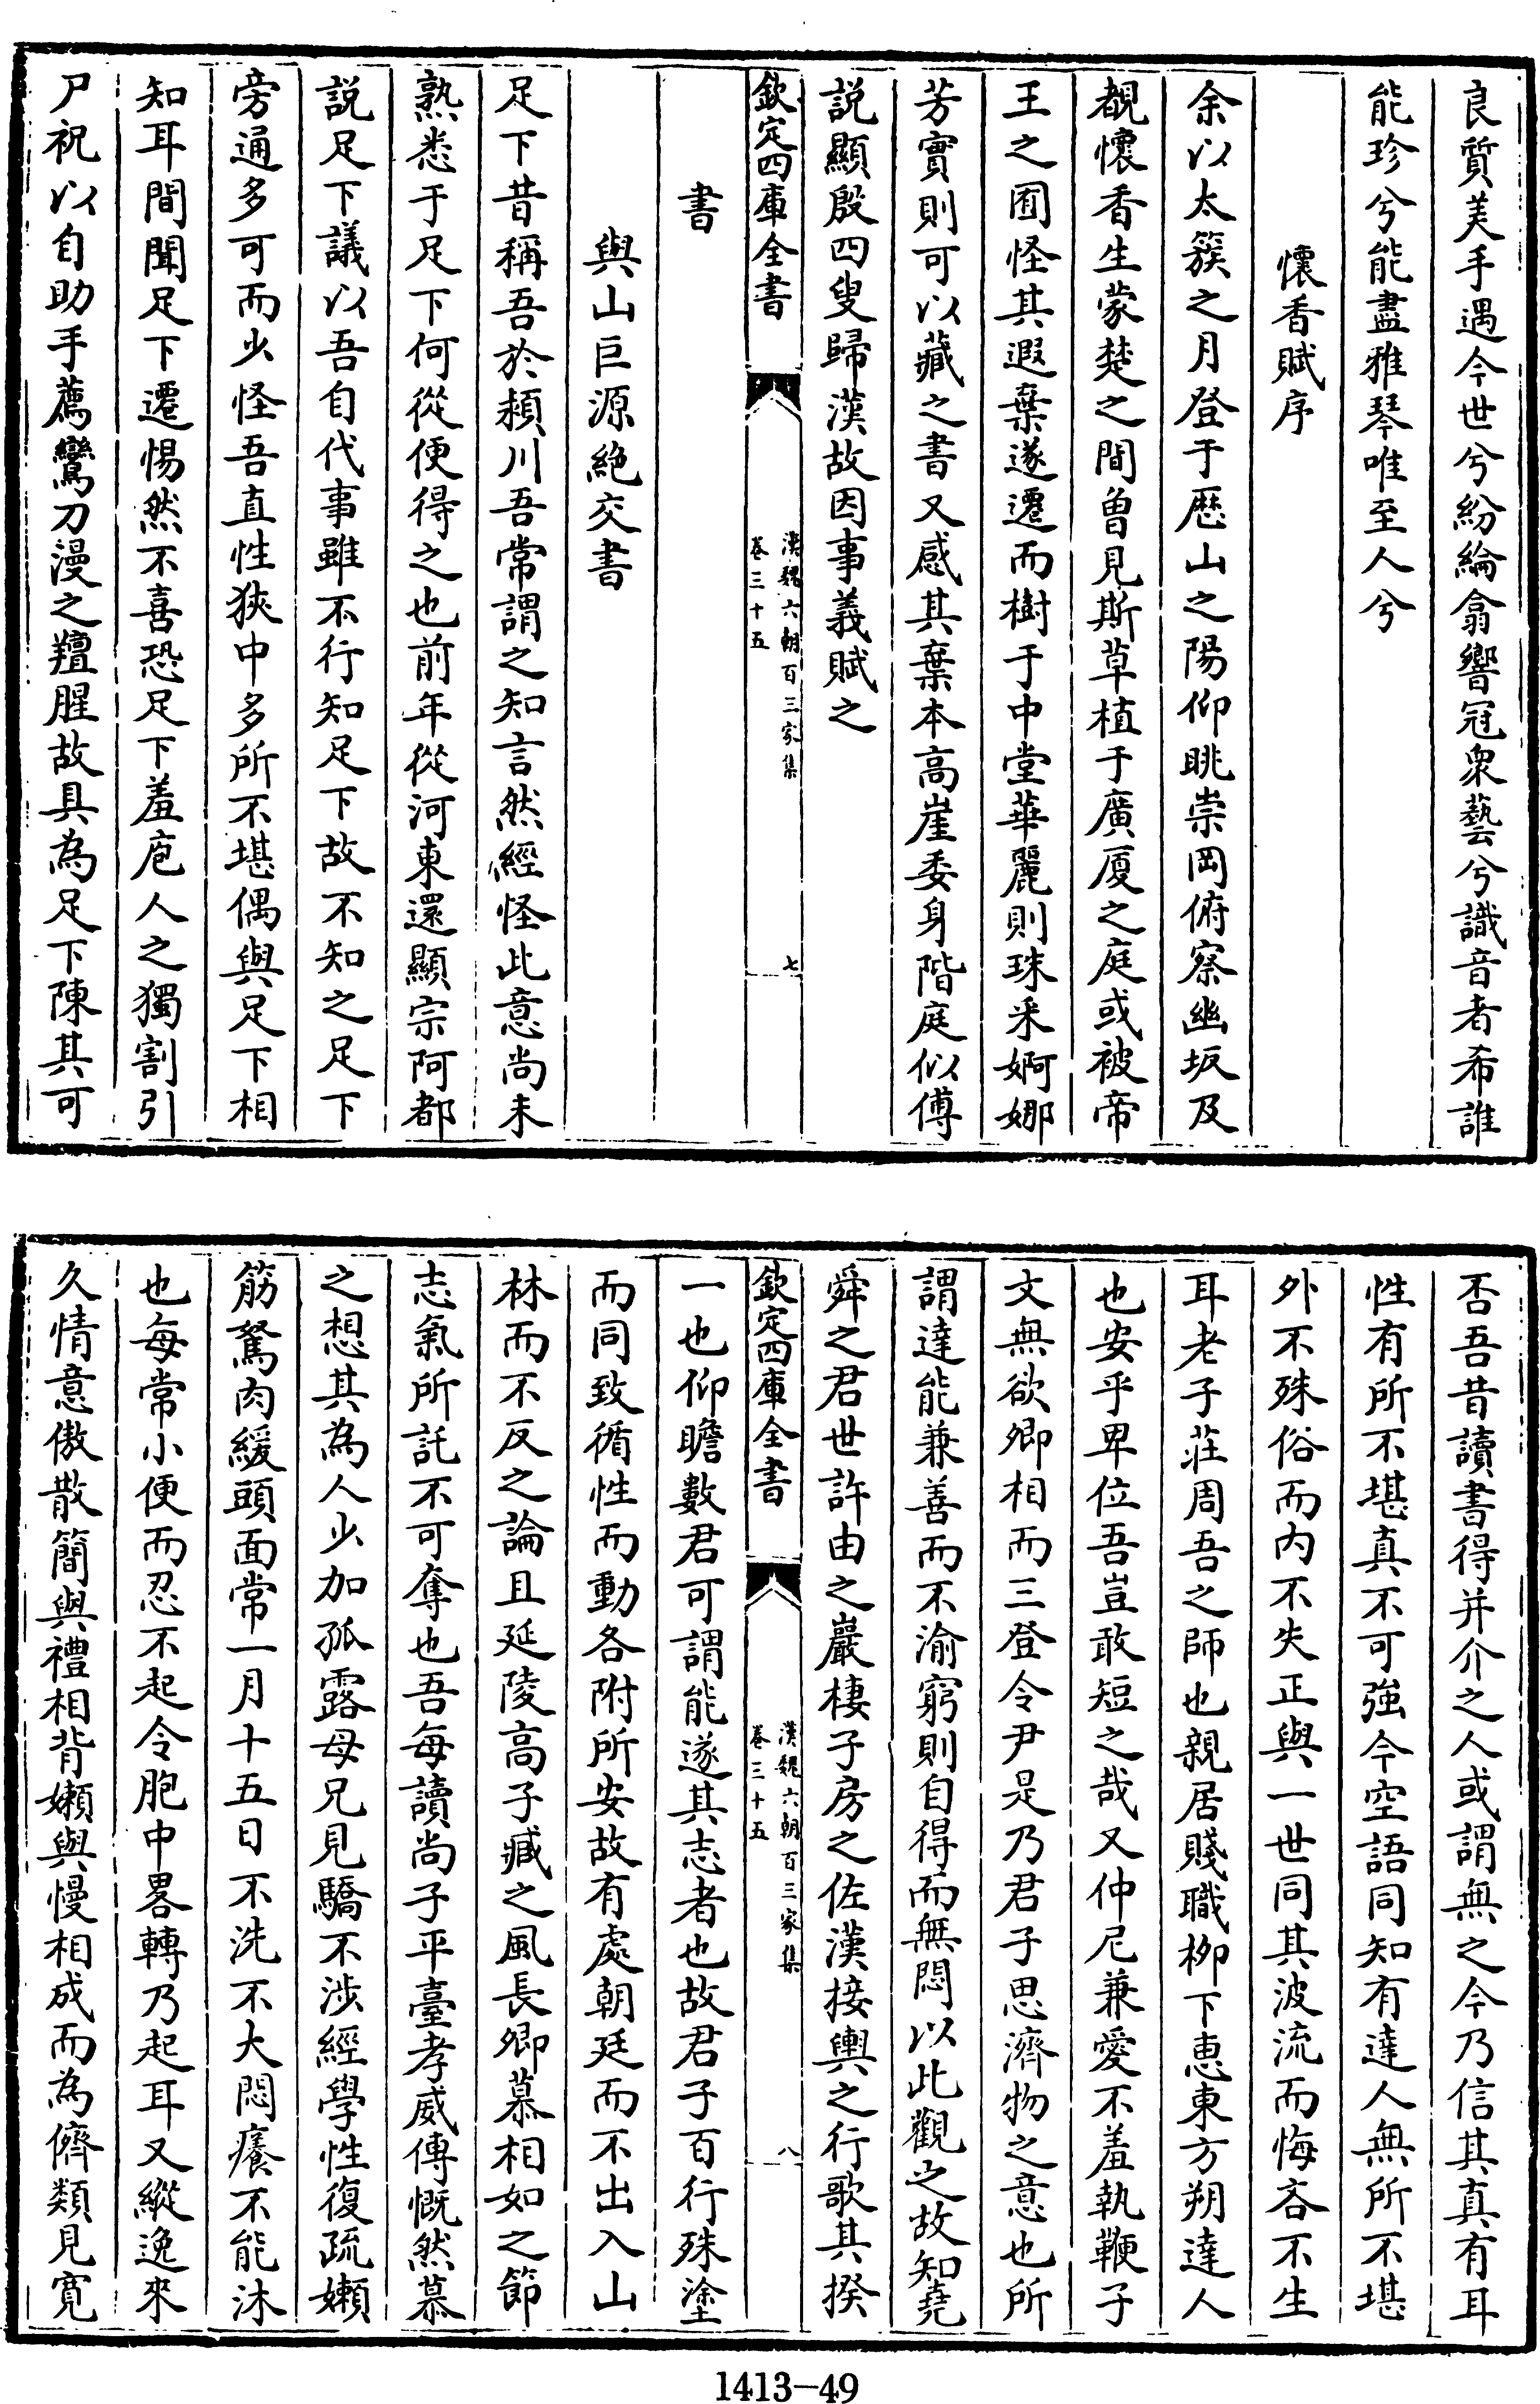 良質美手遇今世兮紛綸翕響冠衆藝兮識音者希誰
能珍兮能盡雅琴唯至人兮
懷香賦序
余以太簇之月登于歴山之陽仰眺崇岡俯察幽坂及
覩懷香生蒙楚之間曾見斯草植于廣厦之庭或被帝
王之囿怪其遐棄遂遷而樹于中堂華麗則珠采婀娜
芳實則可以藏之書又感其棄本高崖委身階庭似傅
説顯殷四叟歸漢故因事義賦之
欽定四庫全書
漢魏六朝百三家集
卷三十五
七
書
與山巨源絶交書
足下昔稱吾於頴川吾常謂之知言然經怪此意尚未
熟悉于足下何從便得之也前年從河東還顯宗阿都
説足下議以吾自代事雖不行知足下故不知之足下
旁通多可而少怪吾直性狹中多所不堪偶與足下相
知耳間聞足下遷惕然不喜恐足下羞庖人之獨割引
尸祝以自助手薦鸞刀漫之羶腥故具為足下陳其可
否吾昔讀書得并介之人或謂無之今乃信其真有耳
性有所不堪真不可強今空語同知有達人無所不堪
外不殊俗而内不失正與一世同其波流而悔吝不生
耳老子莊周吾之師也親居賤職栁下惠東方朔達人
也安乎卑位吾豈敢短之哉又仲尼兼愛不羞執鞭子
文無欲卿相而三登令尹是乃君子思濟物之意也所
謂達能兼善而不渝窮則自得而無悶以此觀之故知堯
舜之君世許由之巖棲子房之佐漢接輿之行歌其揆
欽定四庫全書
漢魏六朝百三家集
卷三十五
八
一也仰瞻數君可謂能遂其志者也故君子百行殊塗
而同致循性而動各附所安故有處朝廷而不出入山
林而不反之論且延陵高子臧之風長卿慕相如之節
志氣所託不可奪也吾每讀尚子平臺孝威傳慨然慕
之想其為人少加孤露母兄見驕不涉經學性復疏嬾
筋駑肉緩頭面常一月十五日不洗不大悶癢不能沐
也每常小便而忍不起令胞中畧轉乃起耳又縱逸來
久情意傲散簡與禮相背嬾與慢相成而為儕類見寛
1413—49